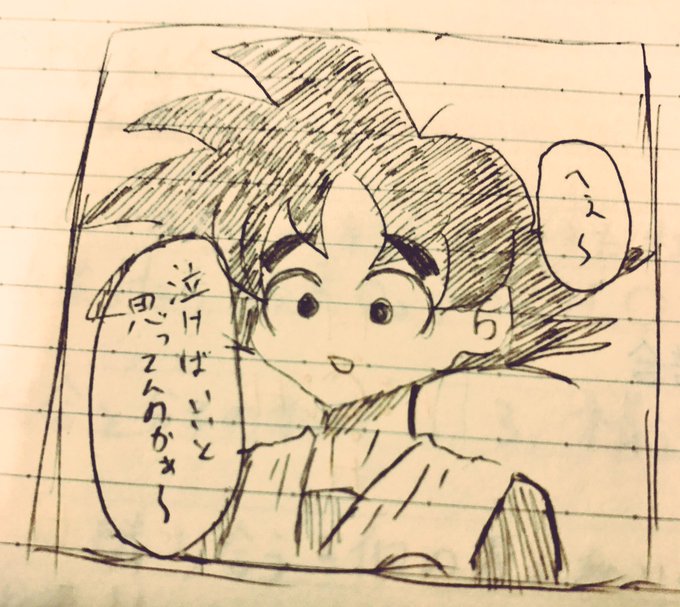 へえ〜
泣けばいいと
思ってんのかぁ〜